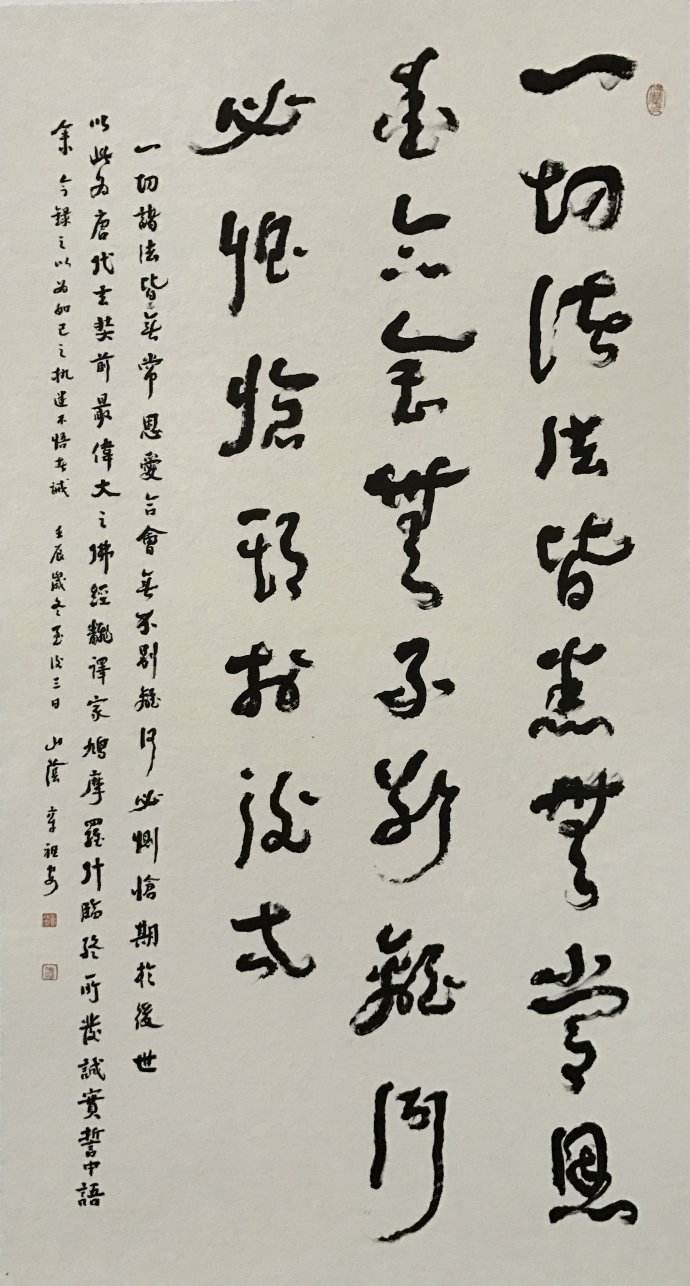 一切諸法皆悉無常恩
愛合會無不別離何
必惻愴期於後世
一切諸法皆無常恩愛合會無不別離何必惻愴期於後世
以此為唐代玄奘前最偉大之佛經翻譯家鳩摩羅什臨終所發誠實誓中語
余今錄之以為如己之执迷不悟者誡 壬辰歲冬至後三日 山陰 章祖安